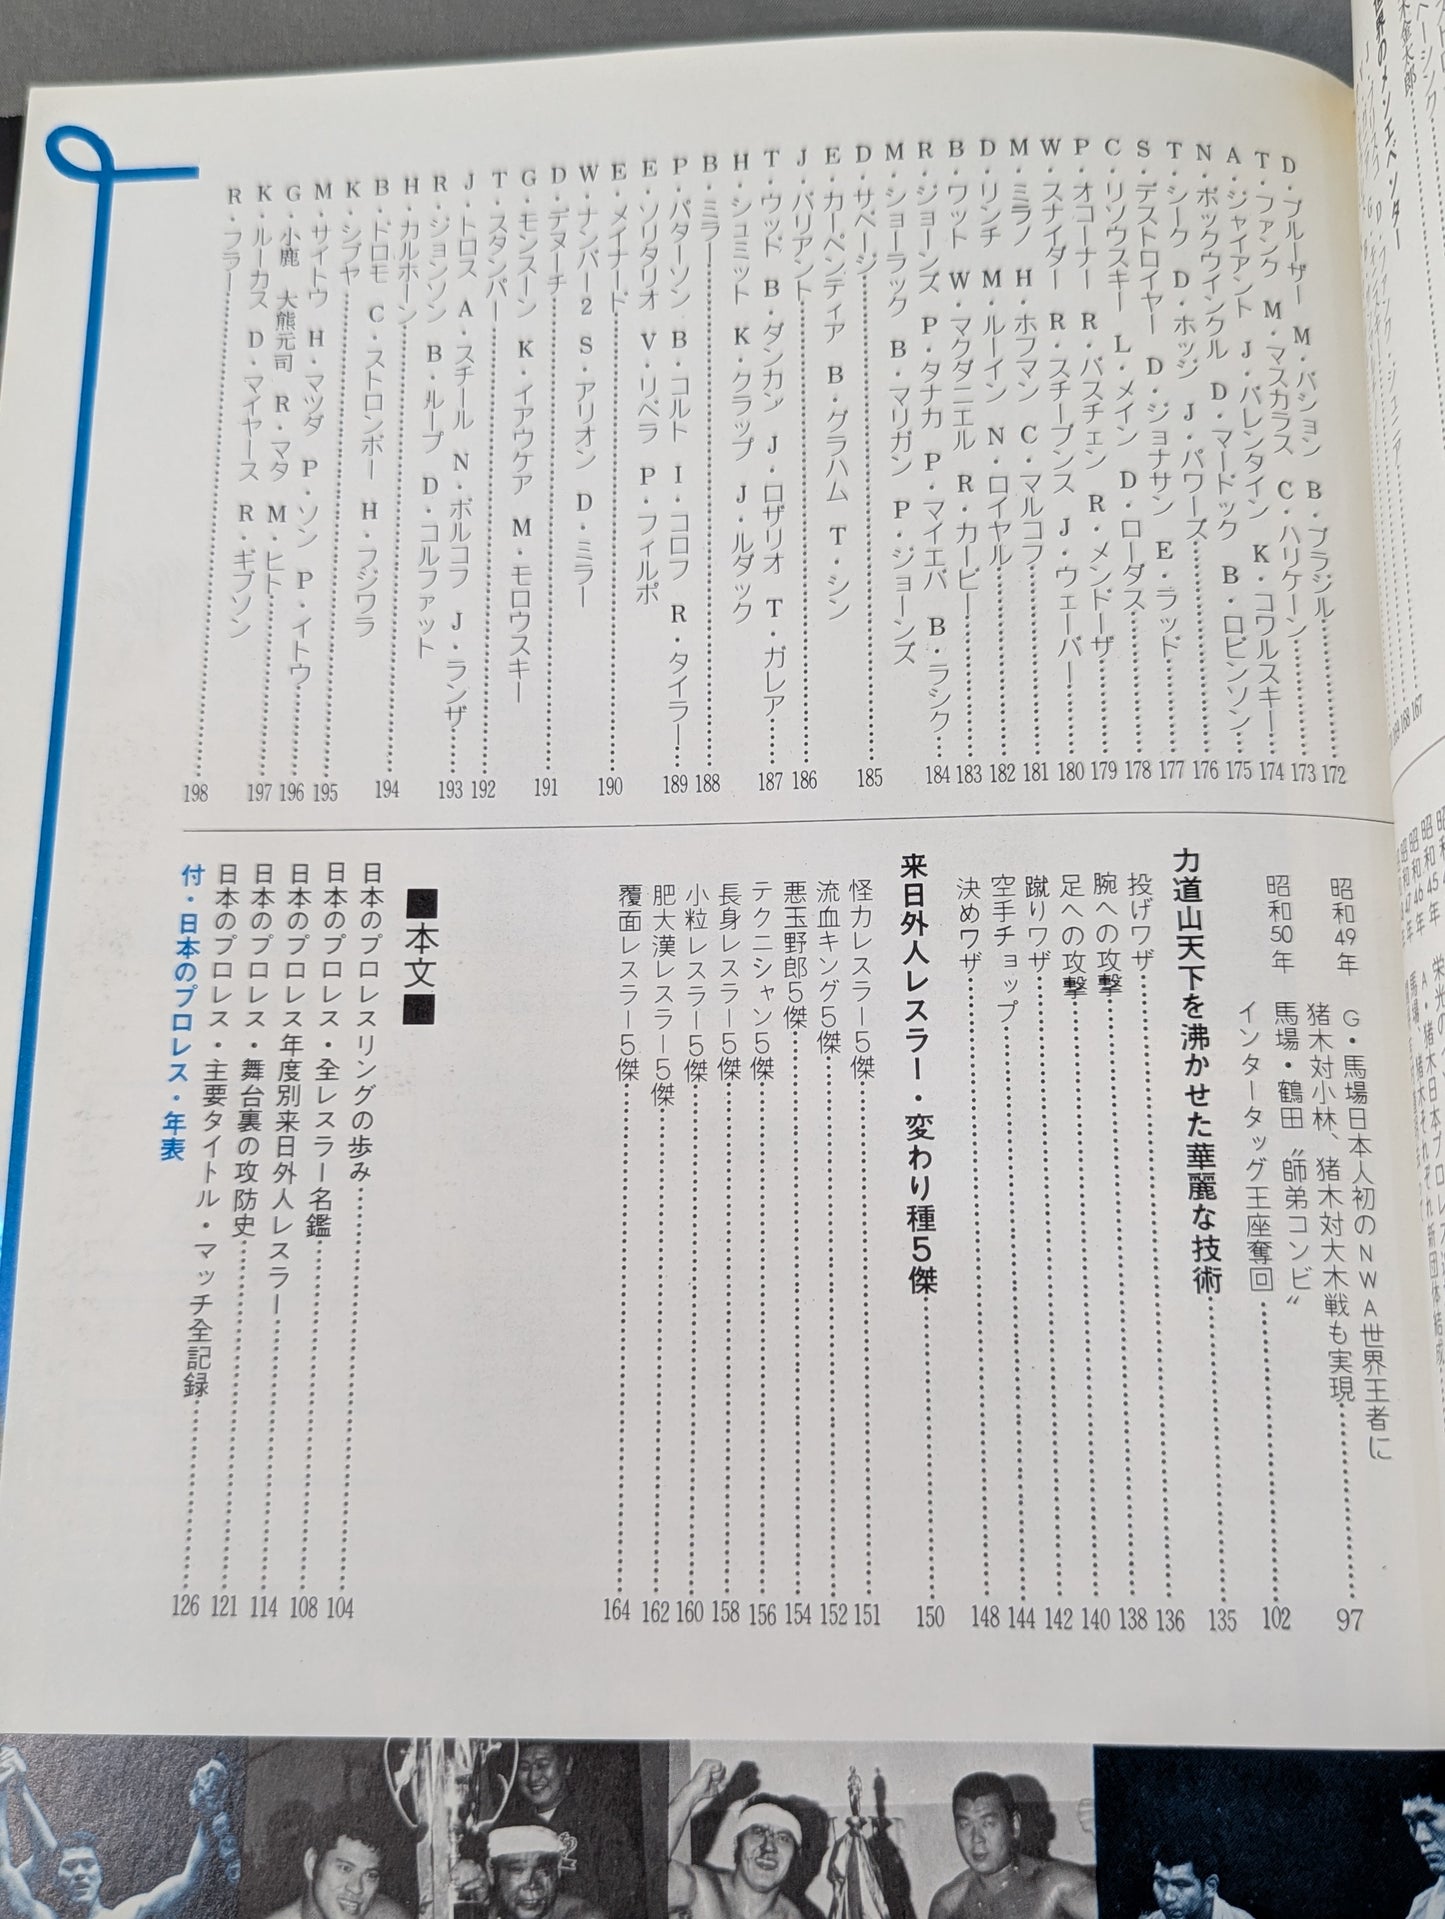 D・ブルーザー M・バション B・ブラジル……172
T・ファンク M・マスカラス C・ハリケーン……173
A・ジャイアント J・バレンタイン K・コワルスキー……174
N・ボックウインクル D・マードック B・ロビンソン……175
T・シーク D・ホッジ J・パワーズ……176
S・デストロイヤー D・ジョナサン E・ラッド……177
C・リソウスキー L・メイン D・ローダス……178
P・オコーナー R・バスチェン R・メンドーザ……179
W・スナイダー R・スチーブンス J・ウェーバー……180
M・ミラノ H・ホフマン C・マルコフ……181
D・リンチ M・ルーイン N・ロイヤル……182
B・ワット W・マクダニエル R・カービー……183
R・ジョーンズ P・タナカ P・マイエバ B・ラシク……184
M・ショーラック B・マリガン P・ジョーンズ
D・サベージ……185
E・カーペンティア B・グラハム T・シン
J・バリアント……186
T・ウッド B・ダンカン J・ロザリオ T・ガレア……187
H・シュミット K・クラップ J・ルダック
B・ミラー……188
P・パターソン B・コルト I・コロフ R・タイラー……189
E・ソリタリオ V・リベラ P・フィルポ
E・メイナード……190
W・ナンバー2 S・アリオン D・ミラー
D・デヌーチ……191
G・モンスーン K・イアウケア M・モロウスキー
T・スタンパー……192
J・トロス A・スチール N・ボルコフ J・ランザ……193
R・ジョンソン B・ループ D・コルファット
H・カルホーン……194
B・ドロモ C・ストロンボー H・フジワラ
K・シブヤ……195
M・サイトウ H・マツダ P・ソン P・イトウ……196
G・小鹿 大熊元司 R・マタ M・ヒト……197
K・ルーカス D・マイヤース R・ギブソン
R・フラー……198
昭和49年 G・馬場日本人初のNWA世界王者に
猪木対小林、猪木対大木戦も実現……97
昭和50年 馬場・鶴田〝師弟コンビ〟
インタータッグ王座奪回……102
力道山天下を沸かせた華麗な技術……135
投げワザ……136
腕への攻撃……138
足への攻撃……140
蹴りワザ……142
空手チョップ……144
決めワザ……148
来日外人レスラー・変わり種5傑……150
怪力レスラー5傑……151
流血キング5傑……152
悪玉野郎5傑……154
テクニシャン5傑……156
長身レスラー5傑……158
小粒レスラー5傑……160
肥大漢レスラー5傑……162
覆面レスラー5傑……164
■本文■
日本のプロレスリングの歩み……104
日本のプロレス・全レスラー名鑑……108
日本のプロレス年度別来日外人レスラー……114
日本のプロレス・舞台裏の攻防史……121
日本のプロレス・主要タイトル・マッチ全記録……126
付・日本のプロレス・年表